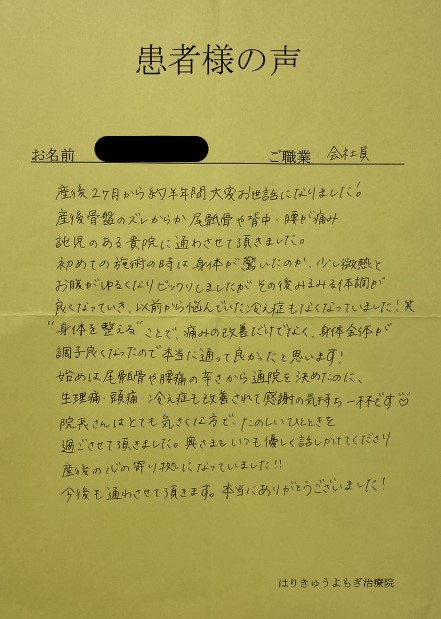 患者様の声
お名前
ご職業 会社員
産後2ヶ月から約半年間大変お世話になりました!
産後骨盤のズレからか尾骶骨や背中・腰が痛み
託児のある貴院に通わさせて頂きました。
初めての施術の時は身体が驚いたのか、少し微熱と
お腹がゆるくなりビックリしましたがその後みるみる体調が
良くなっていき、以前から悩んでいた冷え症もなくなっていました!笑
"身体を整える"ことで、痛みの改善だけでなく、身体全体が
調子良くなったので本当に通って良かったと思います!
始めは尾骶骨や腰痛の辛さから通院を決めたのに、
生理痛・頭痛・冷え症も改善されて感謝の気持ち一杯です♡
院長さんはとても気さくな方で、たのしいひとときを
過ごさせて頂きました。奥さまもいつも優しく話しかけてくださり
産後の心の寄り拠になっていました!!
今後も通わさせて頂きます。本当にありがとうございました!
はりきゅうよもぎ治療院